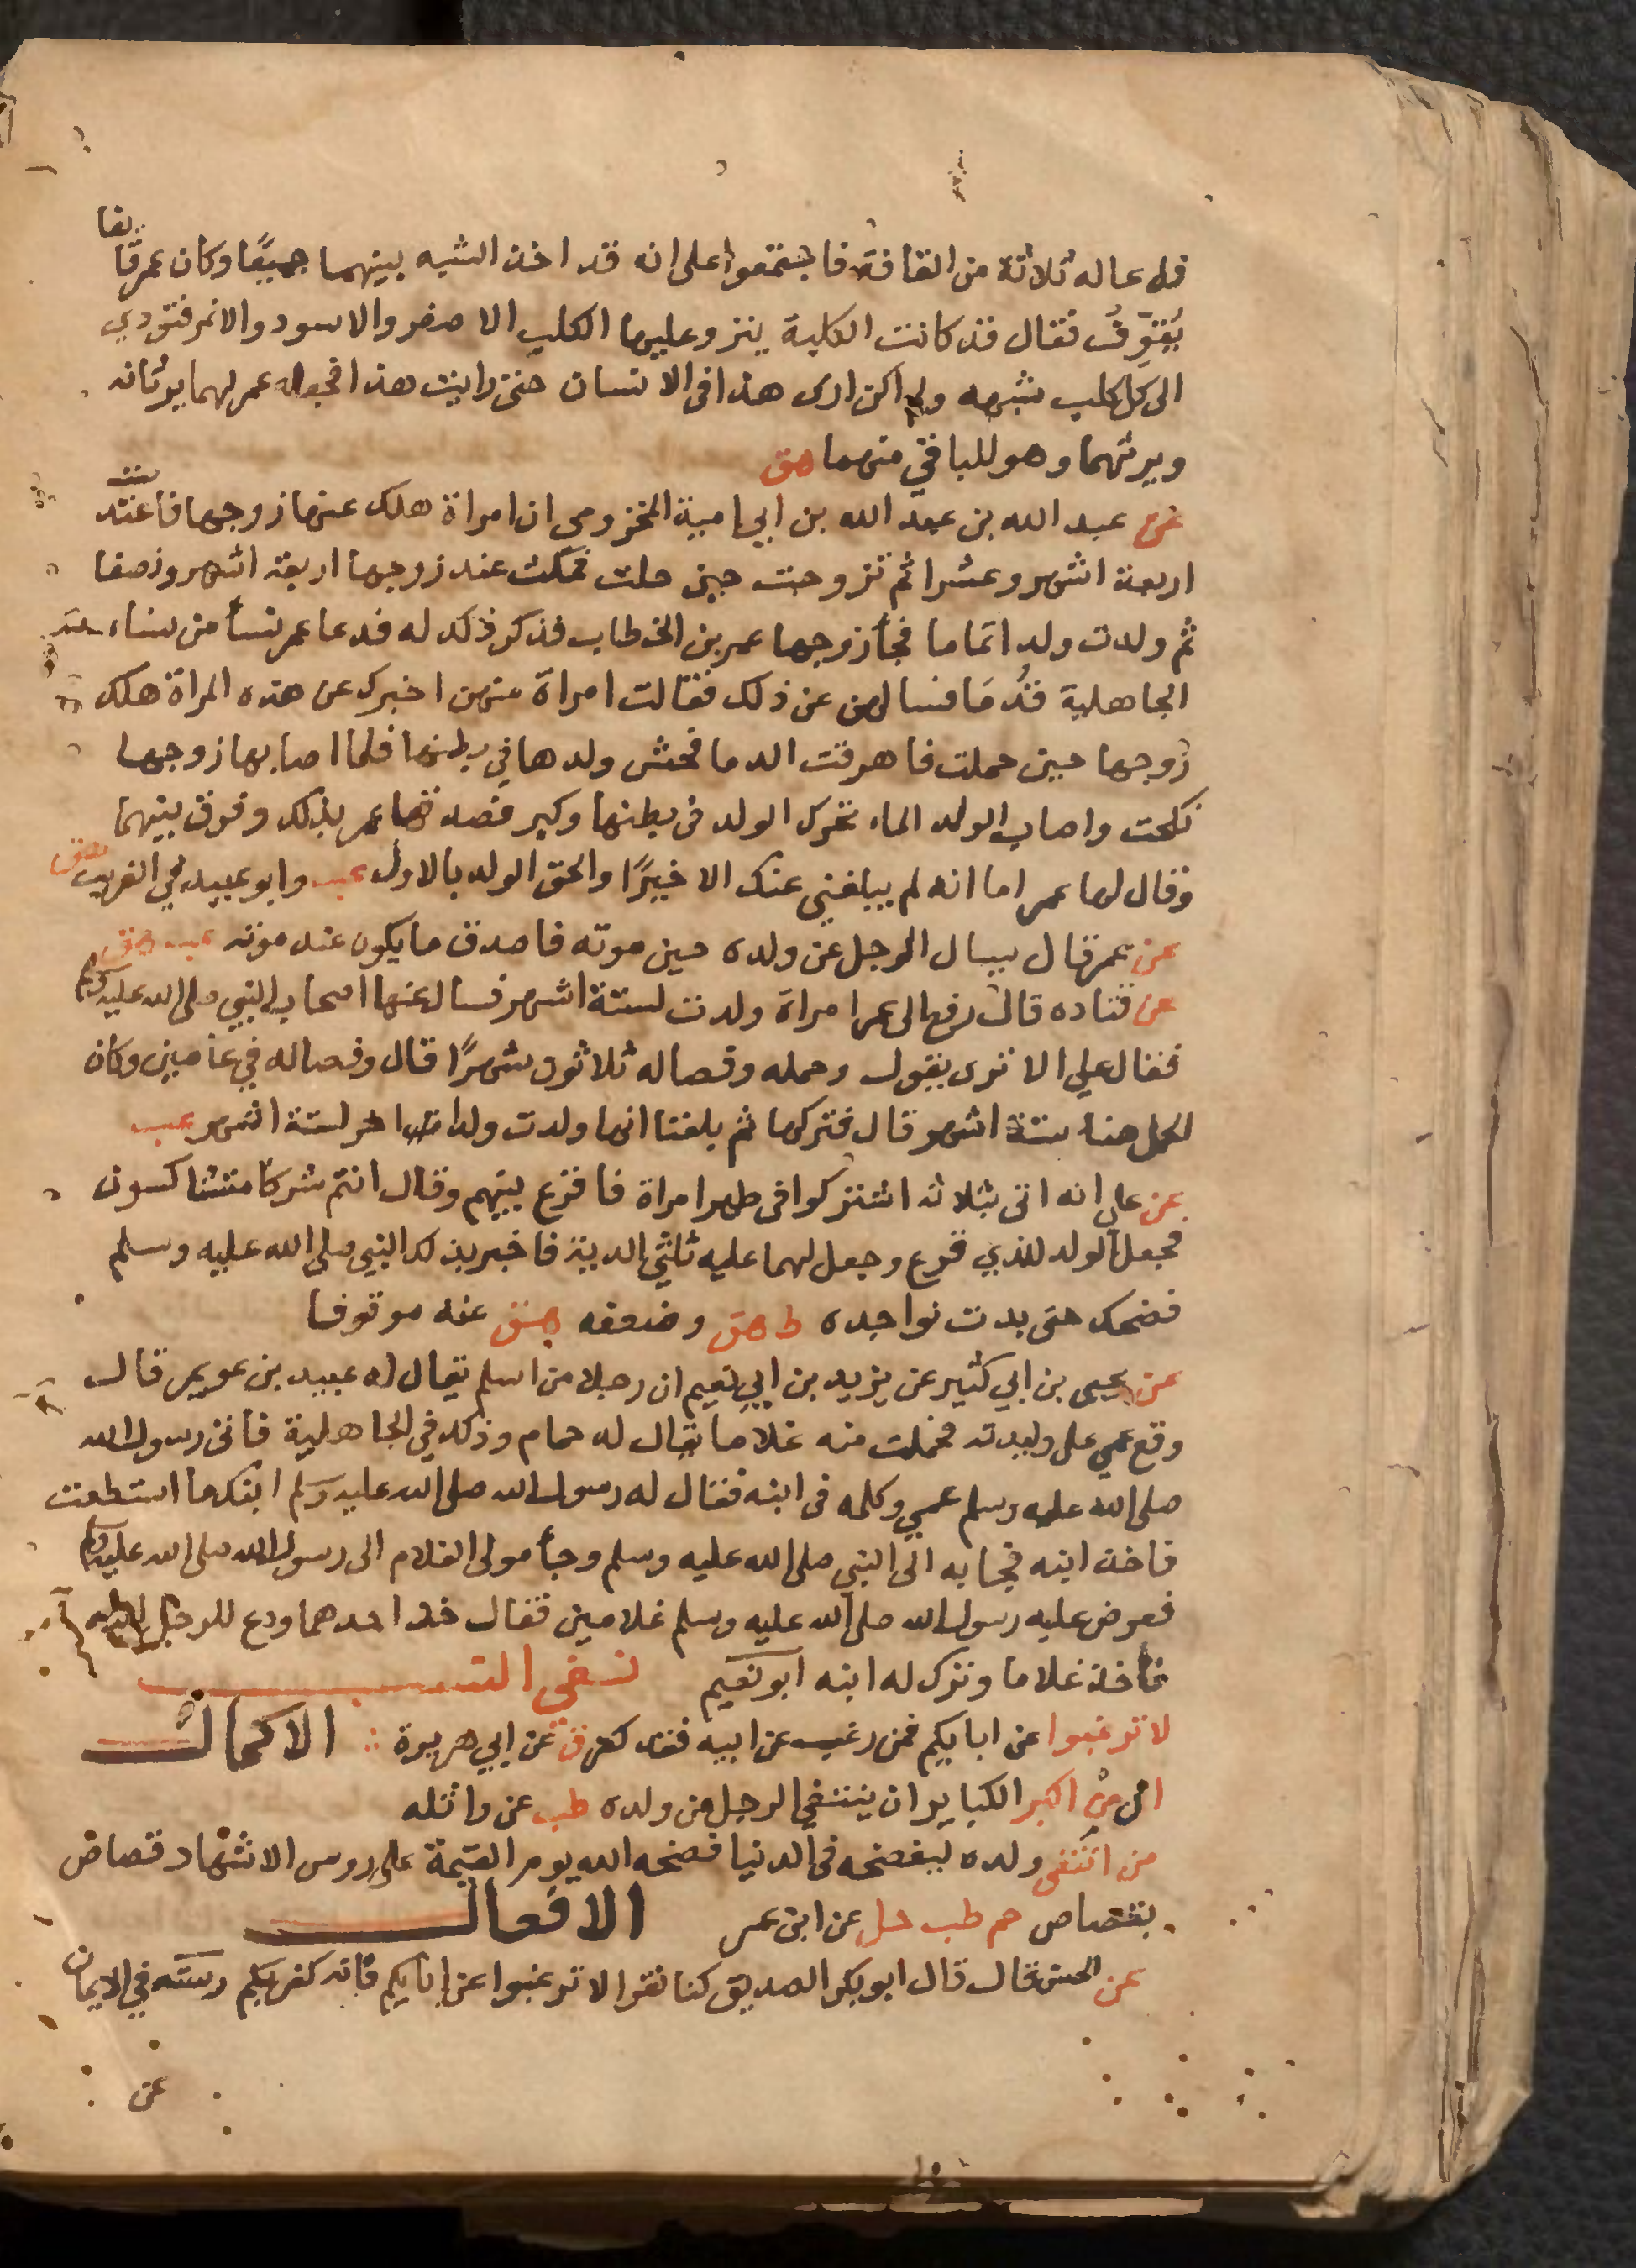 فدعا له ثلاثة من القافة فاجتمعوا على انه قد اخذ الشبه بينهما جميعًا وكان عمر قايفا
يُقوِّفُ فقال قد كانت الكلبة ينزو عليها الكلب الاصفر والاسود والانمر فتودي
الى كل كلب شبهه ولم اكن ارى هذا في الانسان حتى رايت هذا فجعله عمر لهما يرثانه
ويرثهما وهو للباقي منهما هق
عن عبد الله بن عبد الله بن ابي امية المخزومي ان امراة هلك عنها زوجها فاعتدت
اربعة اشهر وعشرا ثم تزوجت حين حلت فمكث عند زوجها اربعة اشهر ونصفا
ثم ولدت ولدا تماما فجأ زوجها عمر بن الخطاب فذكر ذلك له فدعا عمر نسأ من نساء
الجاهلية قُدمَا فسالهن عن ذلك فقالت امراة منهن اخبرك عن هذه المراة هلك
زوجها حين حملت فاهرقت الدما فحش ولدها في بطنها فلما اصابها زوجها
نكحت واصاب الولد الماء تحرك الولد في بطنها وكبر فصدقها عمر بذلك وفرق بينهما
وقال لها عمر اما انه لم يبلغني عنك الا خيرًا والحق الولد بالاول عب وابو عبيد في الغريب هق
عن عمر قال يسال الرجل عن ولده حين موته فاصدق ما يكون عند موته عب هق
عن قتاده قال رفع الى عمر امراة ولدت لستة اشهر فسال عنها اصحاب النبي صلى الله عليه وسلم
فقال علي الا ترى يقول وحمله وفصاله ثلاثون شهرًا قال وفصاله في عامين وكان
الحمل هنا ستة اشهر قال فتركها ثم بلغنا انها ولدت ولدا اخر لستة اشهر عب
عن علي انه اتى بثلاثه اشتركوا في طهر امراة فاقرع بينهم وقال انتم شركا متشاكسون
فجعل الولد للذي قرع وجعل لهما عليه ثلثي الدية فاخبر بذلك النبي صلى الله عليه وسلم
فضحك حتى بدت نواجده ط هق وضعفه هق عنه موقوفا
عن يحيى بن ابي كثير عن يزيد بن ابي نعيم ان رجلا من اسلم يقال له عبيد بن عويمر قال
وقع عمي على وليدته فحملت منه غلاما يقال له حمام وذلك في الجاهلية فاتى رسول الله
صلى الله عليه وسلم عمي وكلمه في ابنه فقال له رسول الله صلى الله عليه وسلم ابنك ما استطعت
فاخذ ابنه فجا به الى النبي صلى الله عليه وسلم وجأ مولى الغلام الى رسول الله صلى الله عليه وسلم
فعرض عليه رسول الله صلى الله عليه وسلم غلامين فقال خذ احدهما ودع للرجل ابنه
فأخذ غلاما وترك له ابنه ابو نعيم نفي النسب
لا ترغبوا عن ابايكم فمن رغب عن ابيه فقد كفر ق عن ابي هريرة الاكمال
ان من اكبر الكباير ان ينتفي الرجل من ولده طب عن واثله
من انتفى ولده ليفضحه في الدنيا فضحه الله يوم القيمة على روس الاشهاد قصاص
بقصاص حم طب حل عن ابن عمر الافعال
عن الحسن قال قال ابو بكر الصديق كنا نقرا لا ترغبوا عن ابايكم فانه كفر بكم رسته في الايمان
عن